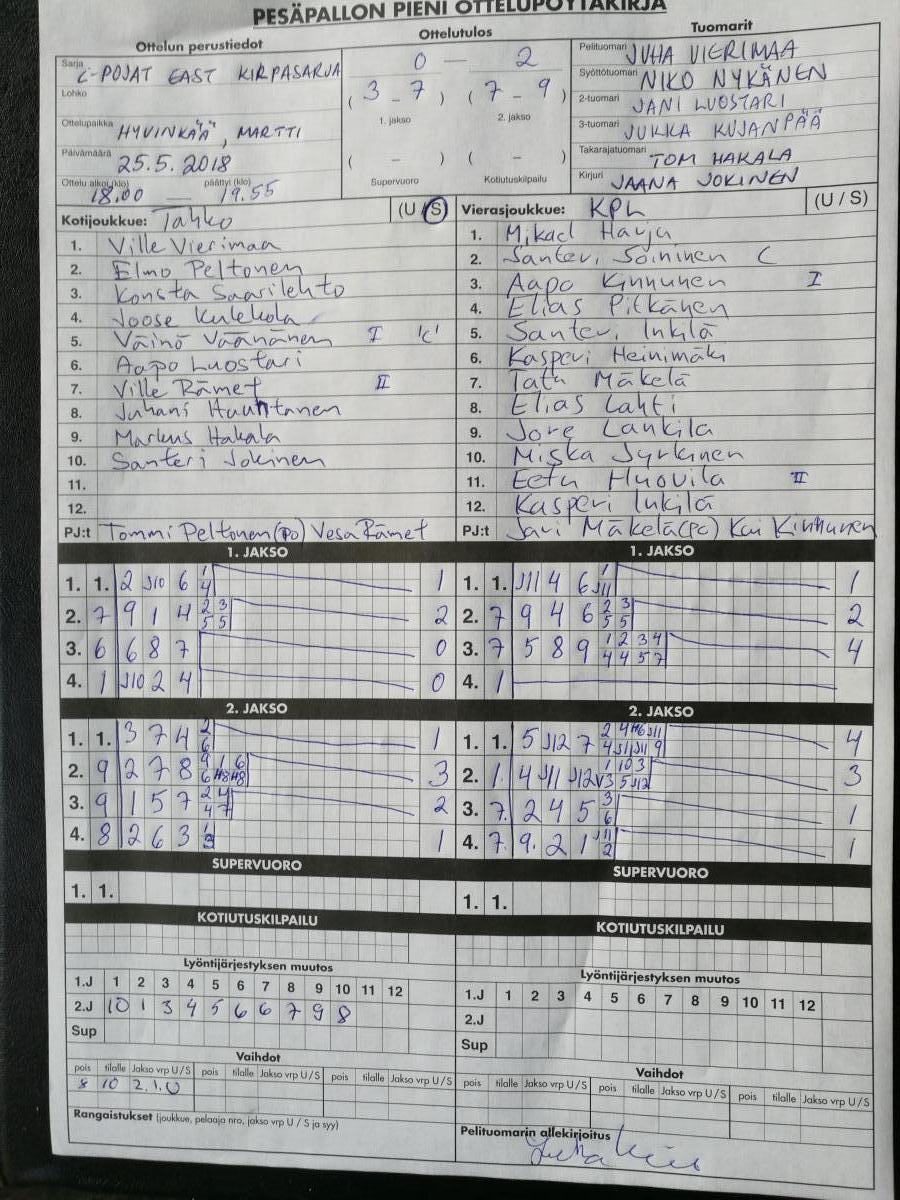 PESÄPALLON PIENI OTTELUPÖYTÄKIRJA
Ottelun perustiedot
Ottelutulos
Tuomarit
Sarja C-POJAT EAST KIRPASARJA
Lohko
Ottelupaikka HYVINKÄÄ, MARTTI
Päivämäärä 25.5.2018
Ottelu alkoi (klo) 18.00 — päättyi (klo) 19.55
0 — 2
( 3 - 7 ) ( 7 - 9 )
1. jakso 2. jakso
( - ) ( - )
Supervuoro Kotiutuskilpailu
Pelituomari JUHA VIERIMAA
Syöttötuomari NIKO NYKÄNEN
2-tuomari JANI LUOSTARI
3-tuomari JUKKA KUJANPÄÄ
Takarajatuomari TOM HAKALA
Kirjuri JAANA JOKINEN
Kotijoukkue: Tahko (U / S)
1. Ville Vierimaa
2. Elmo Peltonen
3. Konsta Saarilehto
4. Joose Kulekola
5. Väinö Väänänen I 'C'
6. Aapo Luostari
7. Ville Rämet II
8. Juhani Huuhtanen
9. Markus Hakala
10. Santeri Jokinen
11.
12.
PJ:t Tommi Peltonen (po) Vesa Rämet
Vierasjoukkue: KPL (U / S)
1. Mikael Harja
2. Santeri Soininen C
3. Aapo Kinnunen I
4. Elias Pitkänen
5. Santeri Inkilä
6. Kasperi Heinimäki
7. Tatu Mäkelä
8. Elias Lahti
9. Jore Lankila
10. Miska Jyrkinen
11. Eetu Huovila II
12. Kasperi Inkilä
PJ:t Jari Mäkelä (po) Kai Kinnunen
1. JAKSO
1. 1. 2 J10 6 1 4 1
2. 7 9 1 4 2 3 5 5 2
3. 6 6 8 7 0
4. 1 J10 2 4 0
2. JAKSO
1. 1. 3 7 4 2 6 1
2. 9 2 7 8 3
3. 9 1 5 7 2 4 4 7 2
4. 8 2 6 3 1
SUPERVUORO
1. 1.
KOTIUTUSKILPAILU
Lyöntijärjestyksen muutos
1.J 1 2 3 4 5 6 7 8 9 10 11 12
2.J 10 1 3 4 5 6 6 7 9 8
Sup
Vaihdot
pois tilalle Jakso vrp U / S pois tilalle Jakso vrp U / S pois tilalle Jakso vrp U / S
8 10 2.1.U
Rangaistukset (joukkue, pelaaja nro, jakso vrp U / S ja syy)
1. JAKSO
1. 1. J11 4 6 1 J11 1
2. 7 9 4 6 2 3 5 5 2
3. 7 5 8 9 1 2 3 4 4 4 5 7 4
4. 1
2. JAKSO
1. 1. 5 J12 7 4
2. 1. 4 J11 J12 3
3. 7. 2 4 5 3 6 1
4. 7. 9. 2 1 J11 2 1
SUPERVUORO
1. 1.
KOTIUTUSKILPAILU
Lyöntijärjestyksen muutos
1.J 1 2 3 4 5 6 7 8 9 10 11 12
2.J
Sup
Vaihdot
pois tilalle Jakso vrp U / S pois tilalle Jakso vrp U / S pois tilalle Jakso vrp U / S
Pelituomarin allekirjoitus